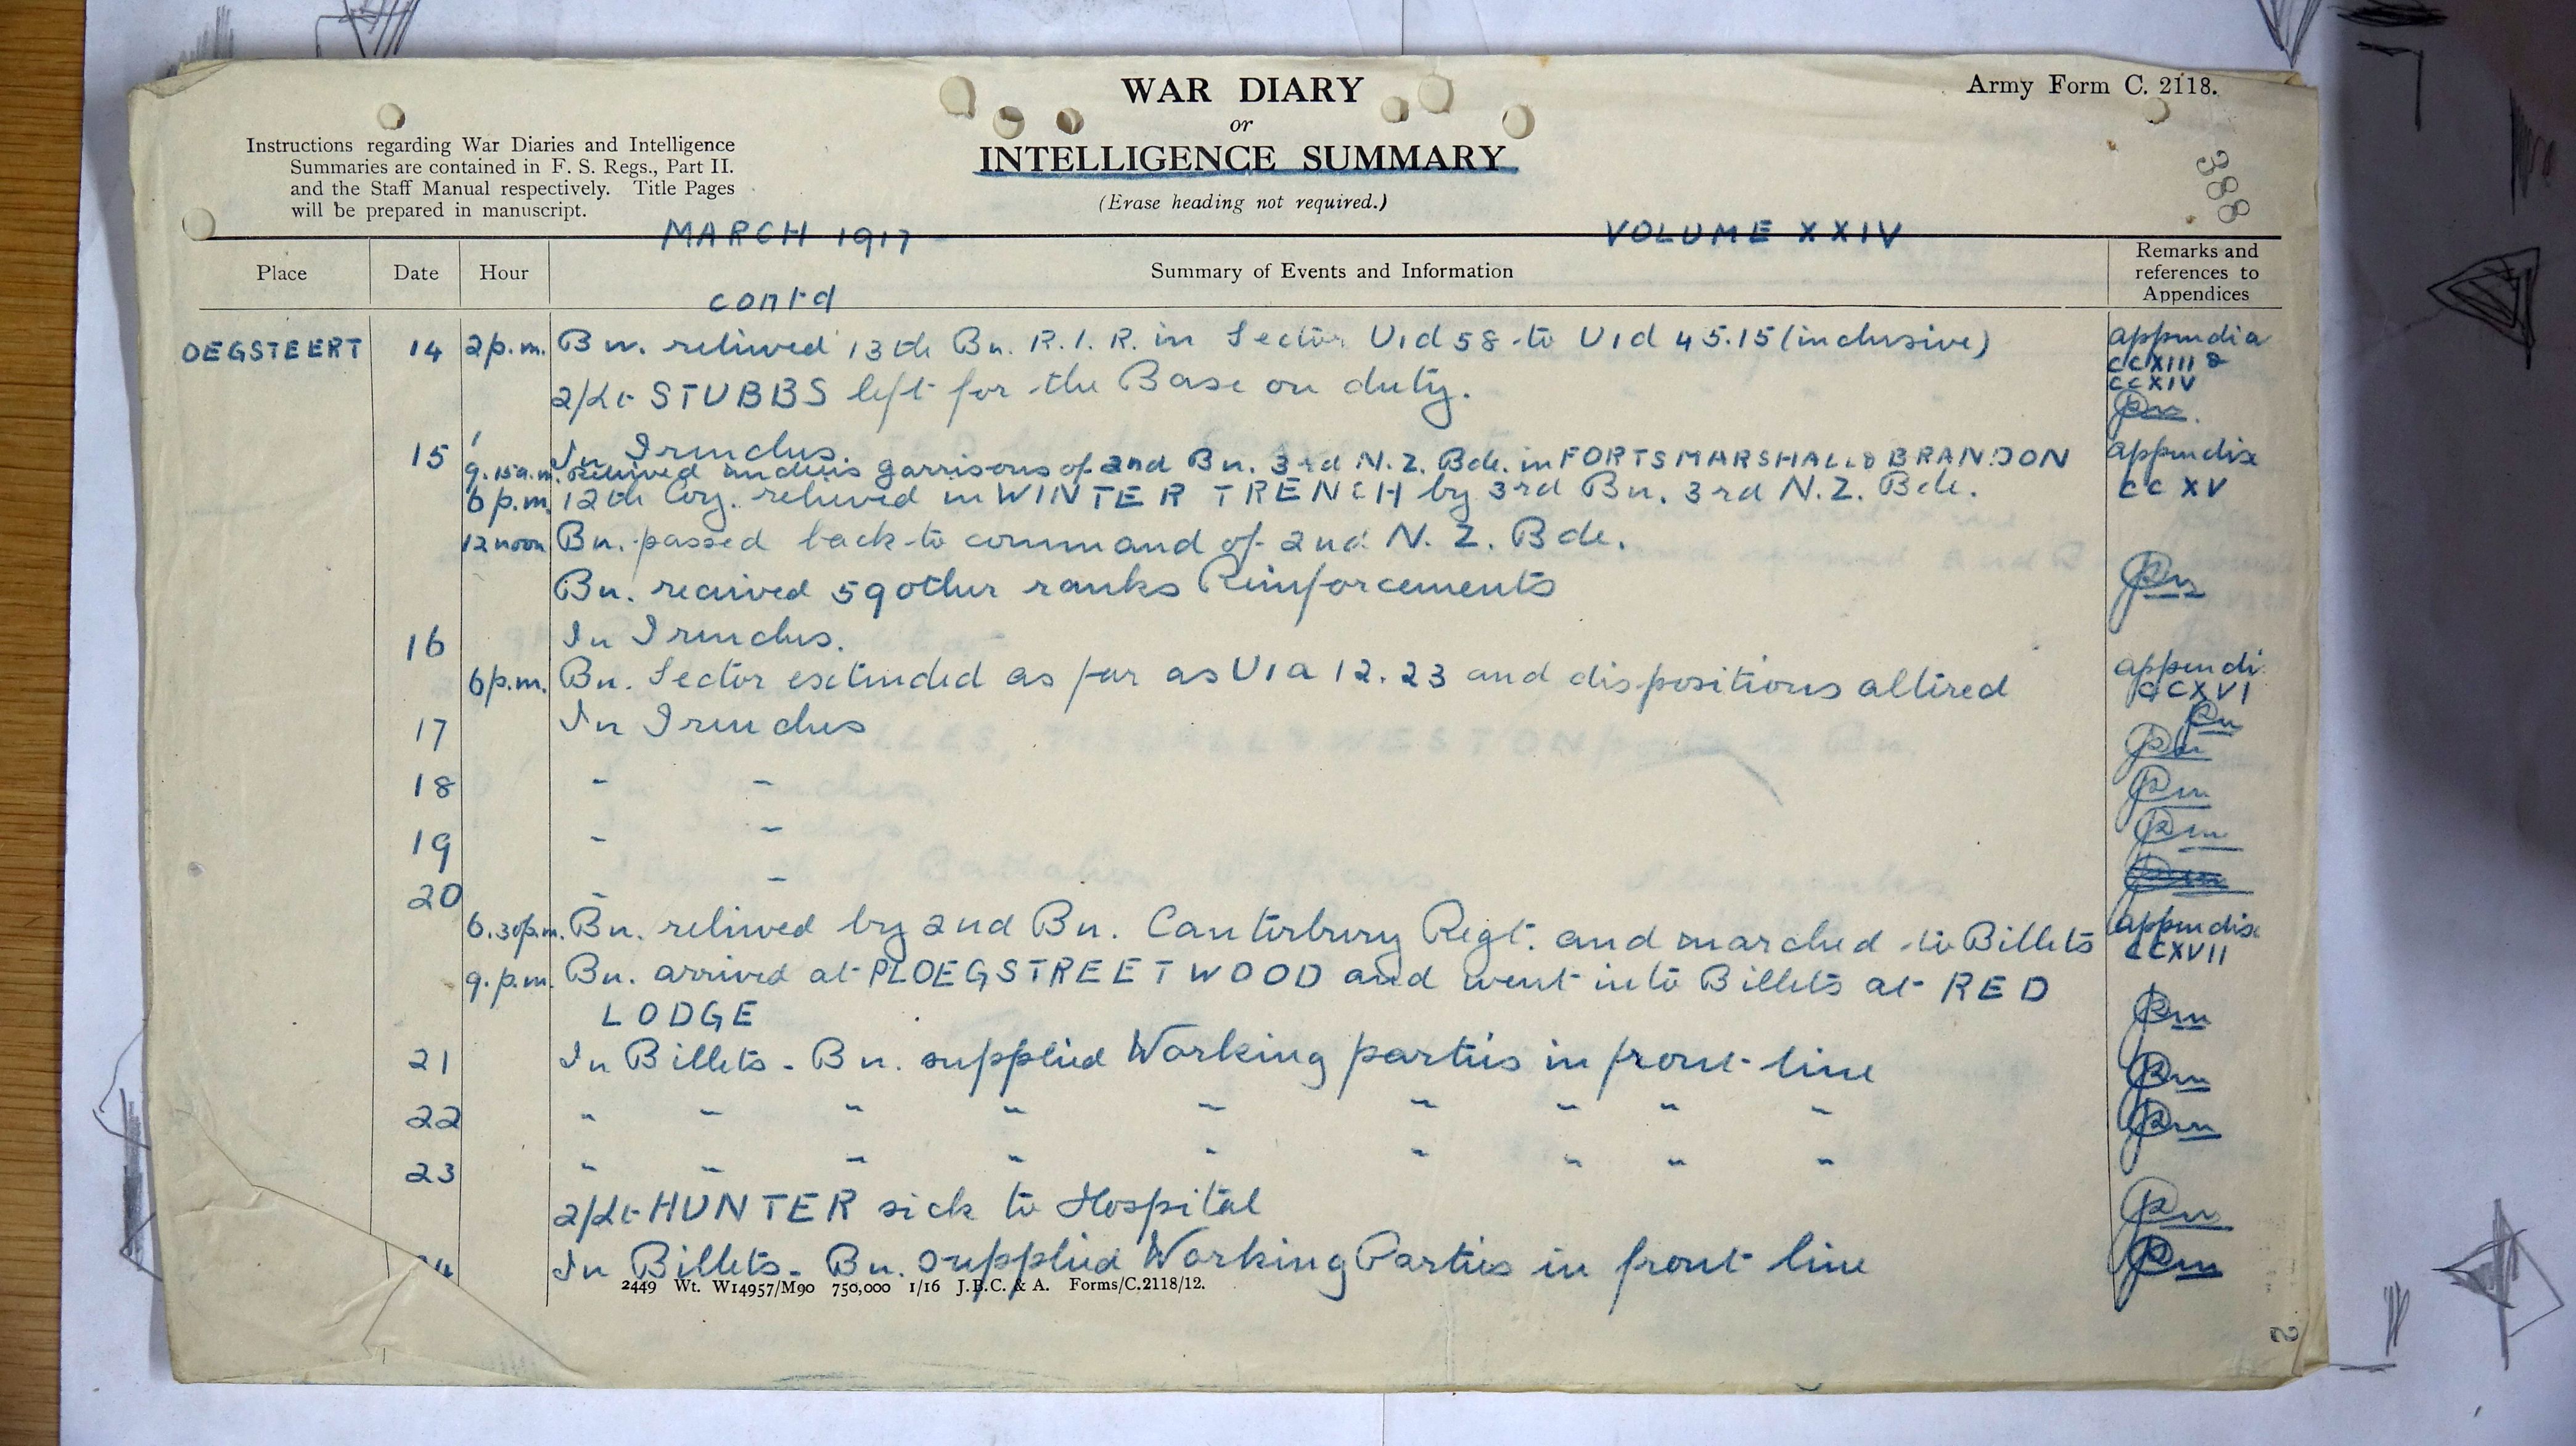 WAR DIARY
or
INTELLIGENCE SUMMARY
(Erase heading not required.)
Army Form C. 2118.
388
Instructions regarding War Diaries and Intelligence
Summaries are contained in F. S. Regs., Part II.
and the Staff Manual respectively. Title Pages
will be prepared in manuscript.
MARCH 1917 VOLUME XXIV
Place Date Hour Summary of Events and Information Remarks and references to Appendices
contd
OEGSTEERT 14 2 p.m. Bn. relieved 13th Bn. R.I.R. in Sector U1d 58 to U1d 45.15 (inclusive) appendix
CCXIII &
CCXIV
2/Lt STUBBS left for the Base on duty.
15 In Trenches.
9.15 a.m. relieved garrisons of 2nd Bn. 3rd N.Z. Bde. in FORTS MARSHALL & BRANDON appendix
6 p.m. 12th Coy. relieved in WINTER TRENCH by 3rd Bn. 3rd N.Z. Bde. CCXV
12 noon Bn. passed back to command of 2nd N.Z. Bde.
Bn. received 59 other ranks Reinforcements
16 In Trenches.
6 p.m. Bn. Sector extended as far as U1a 12.23 and dispositions altered appendi
CCXVI
17 In Trenches
18 " "
19 " "
20 " "
6.30 p.m. Bn. relieved by 2nd Bn. Canterbury Regt. and marched to Billets appendix
CCXVII
9. p.m. Bn. arrived at PLOEGSTREET WOOD and went into Billets at RED
LODGE
21 In Billets - Bn. supplied Working parties in front line
22 " " " " " " " " "
23 " " " " " " " " "
2/Lt HUNTER sick to Hospital
In Billets - Bn. supplied Working Parties in front line
2449 Wt. W14957/M90 750,000 1/16 J.B.C. & A. Forms/C.2118/12.